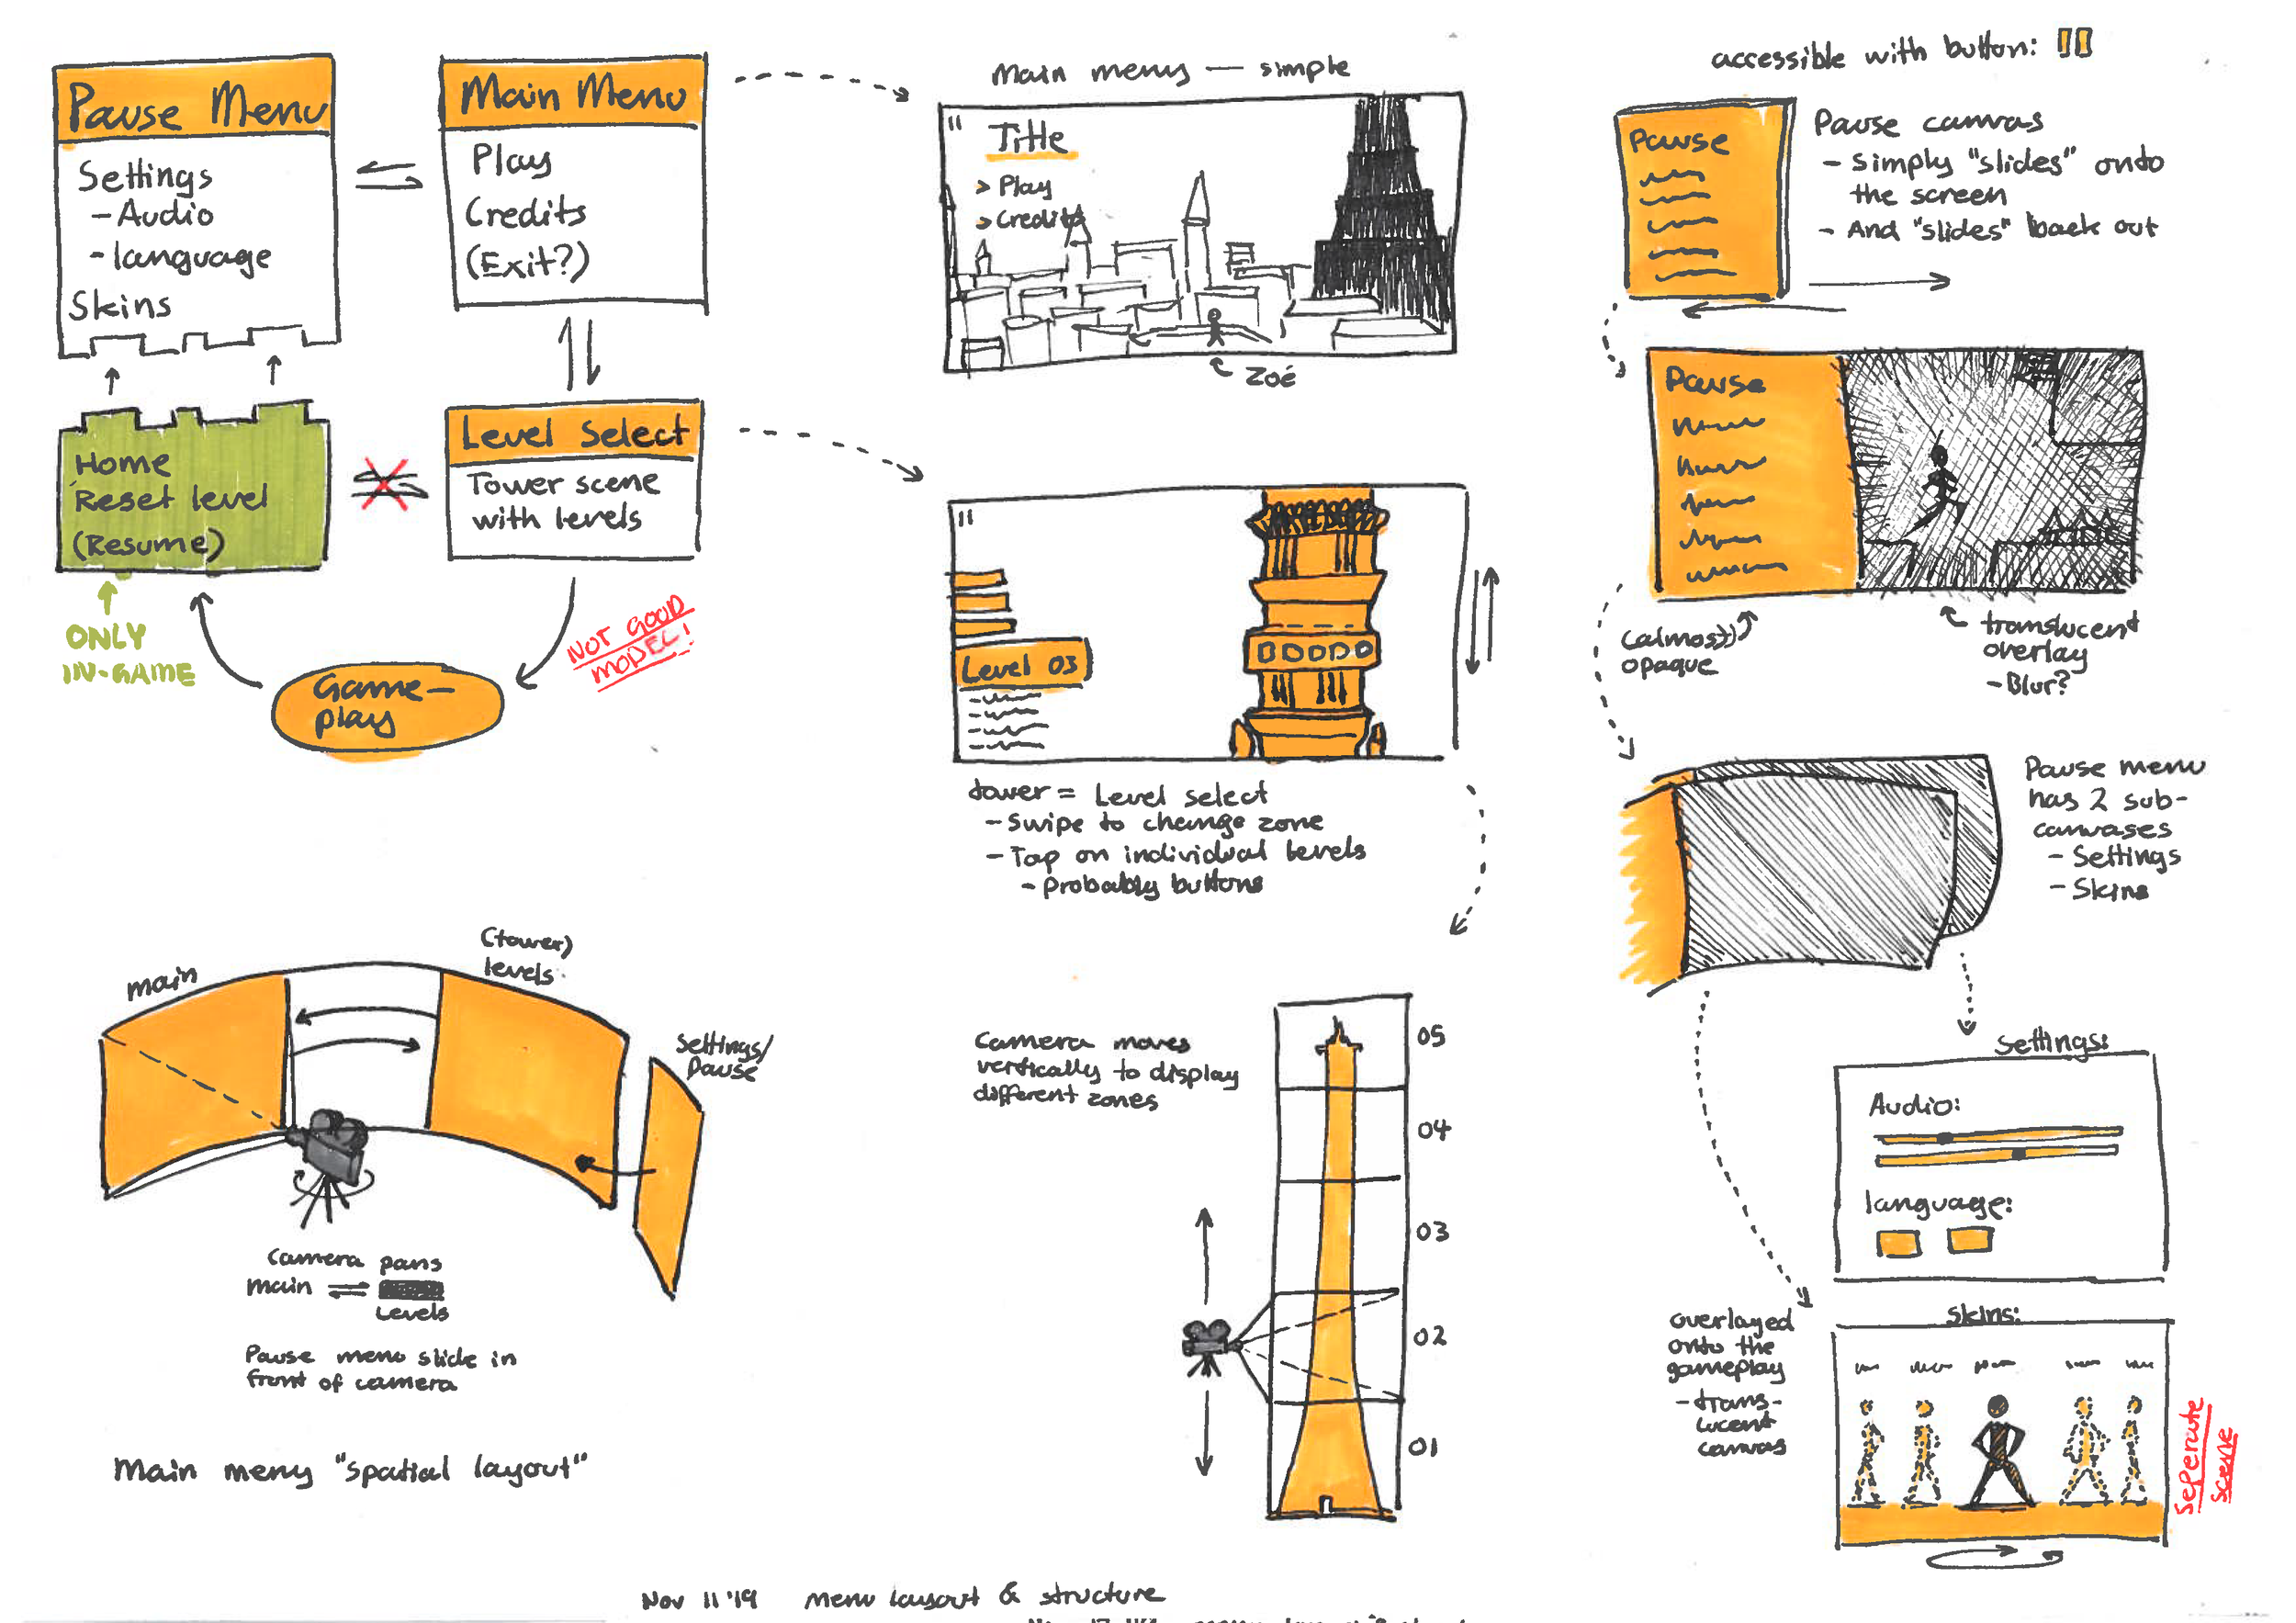 Pause Menu
Settings
- Audio
- language
Skins
Home
Reset level
(Resume)
ONLY
IN-GAME
Main Menu
Play
Credits
(Exit?)
Level Select
Tower scene
with levels
NOT GOOD
MODEL!
Game-
play
main
(tower)
levels
Settings/
Pause
Camera pans
main ⇌
Levels
Pause menu slide in
front of camera
Main meny "spatial layout"
Main meny — simple
Title
> Play
> Credits
Zoé
Level 03
tower = Level select
- Swipe to change zone
- Tap on individual levels
- Probably buttons
Camera moves
vertically to display
different zones
05
04
03
02
01
accessible with button:
Pause
Pause canvas
- Simply "slides" onto
the screen
- And "slides" back out
Pause
(almost)
opaque
translucent
overlay
- Blur?
Pause menu
has 2 sub-
canvases
- Settings
- Skins
Settings:
Audio:
language:
Skins:
overlayed
onto the
gameplay
- trans-
lucent
canvas
Seperate
scene
Nov 11 '19 menu layout & structure